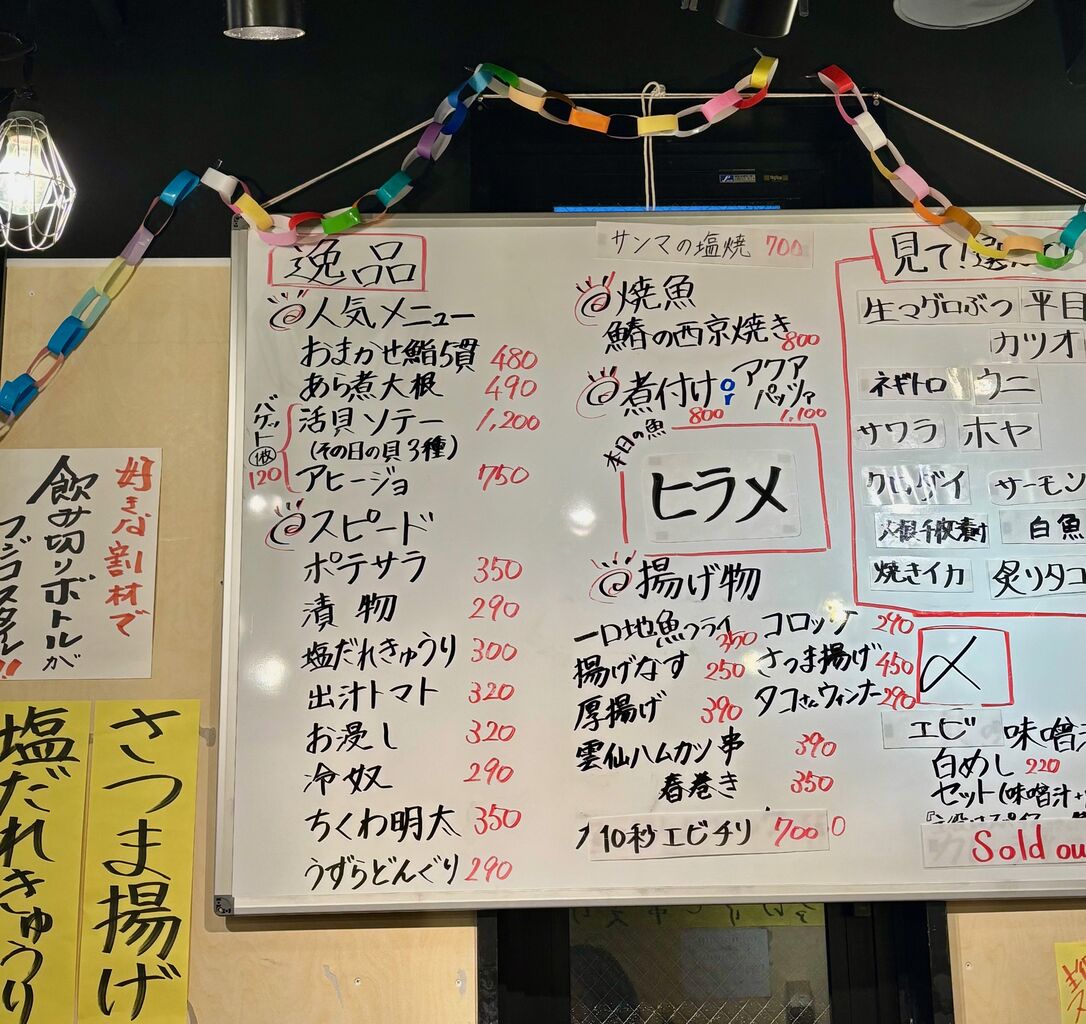 逸品
@人気メニュー
おまかせ鮨5貫 480
あら煮大根 490
バゲット 1枚 120
活貝ソテー 1,200
(その日の貝3種)
アヒージョ 750
@スピード
ポテサラ 350
漬物 290
塩だれきゅうり 300
出汁トマト 320
お浸し 320
冷奴 290
ちくわ明太 350
うずらどんぐり 290
サンマの塩焼 700
@焼魚
鰆の西京焼き 800
@煮付け 800 or アクアパッツァ 1,100
本日の魚
ヒラメ
@揚げ物
一口地魚フライ
揚げなす 250
厚揚げ 390
雲仙ハムカツ串 390
春巻き 350
10秒エビチリ 700
コロッケ 290
さつま揚げ 450
タコさんウィンナー 290
見て!
生マグロぶつ 平目
カツオ
ネギトロ ウニ
サワラ ホヤ
クロダイ サーモン
大根千枚漬け 白魚
焼きイカ 炙りタコ
〆
エビ 味噌汁
白めし 220
セット(味噌汁+
Sold ou
好きな割材で
飲み切りボトルが
フジコスタイル!!
さつま揚げ
塩だれきゅうり